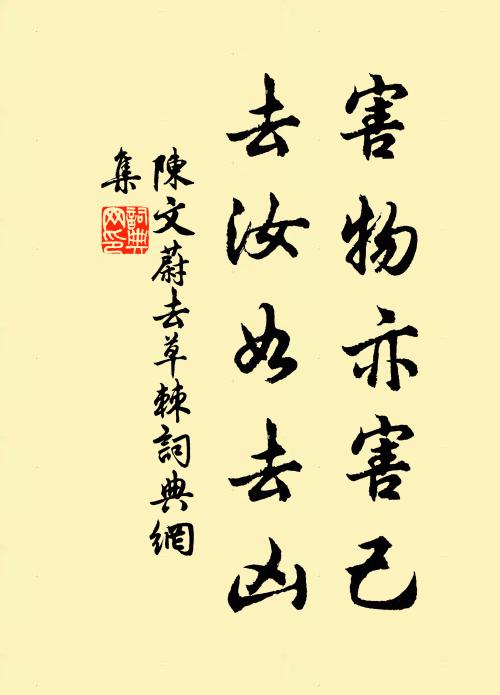 害物亦害己
去汝如去凶
陳文蔚去草棘詞典網
集
詞典網印